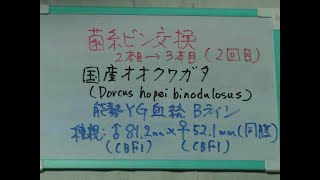 菌糸ビン交換
2本目→3本目(2回目)
国産オオクワガタ
(Dorcus hopei binodulosus)
能勢YG血統 Bライン
種親:♂81.2mm×♀52.1mm(同腹)
(CBF1) (CBF1)